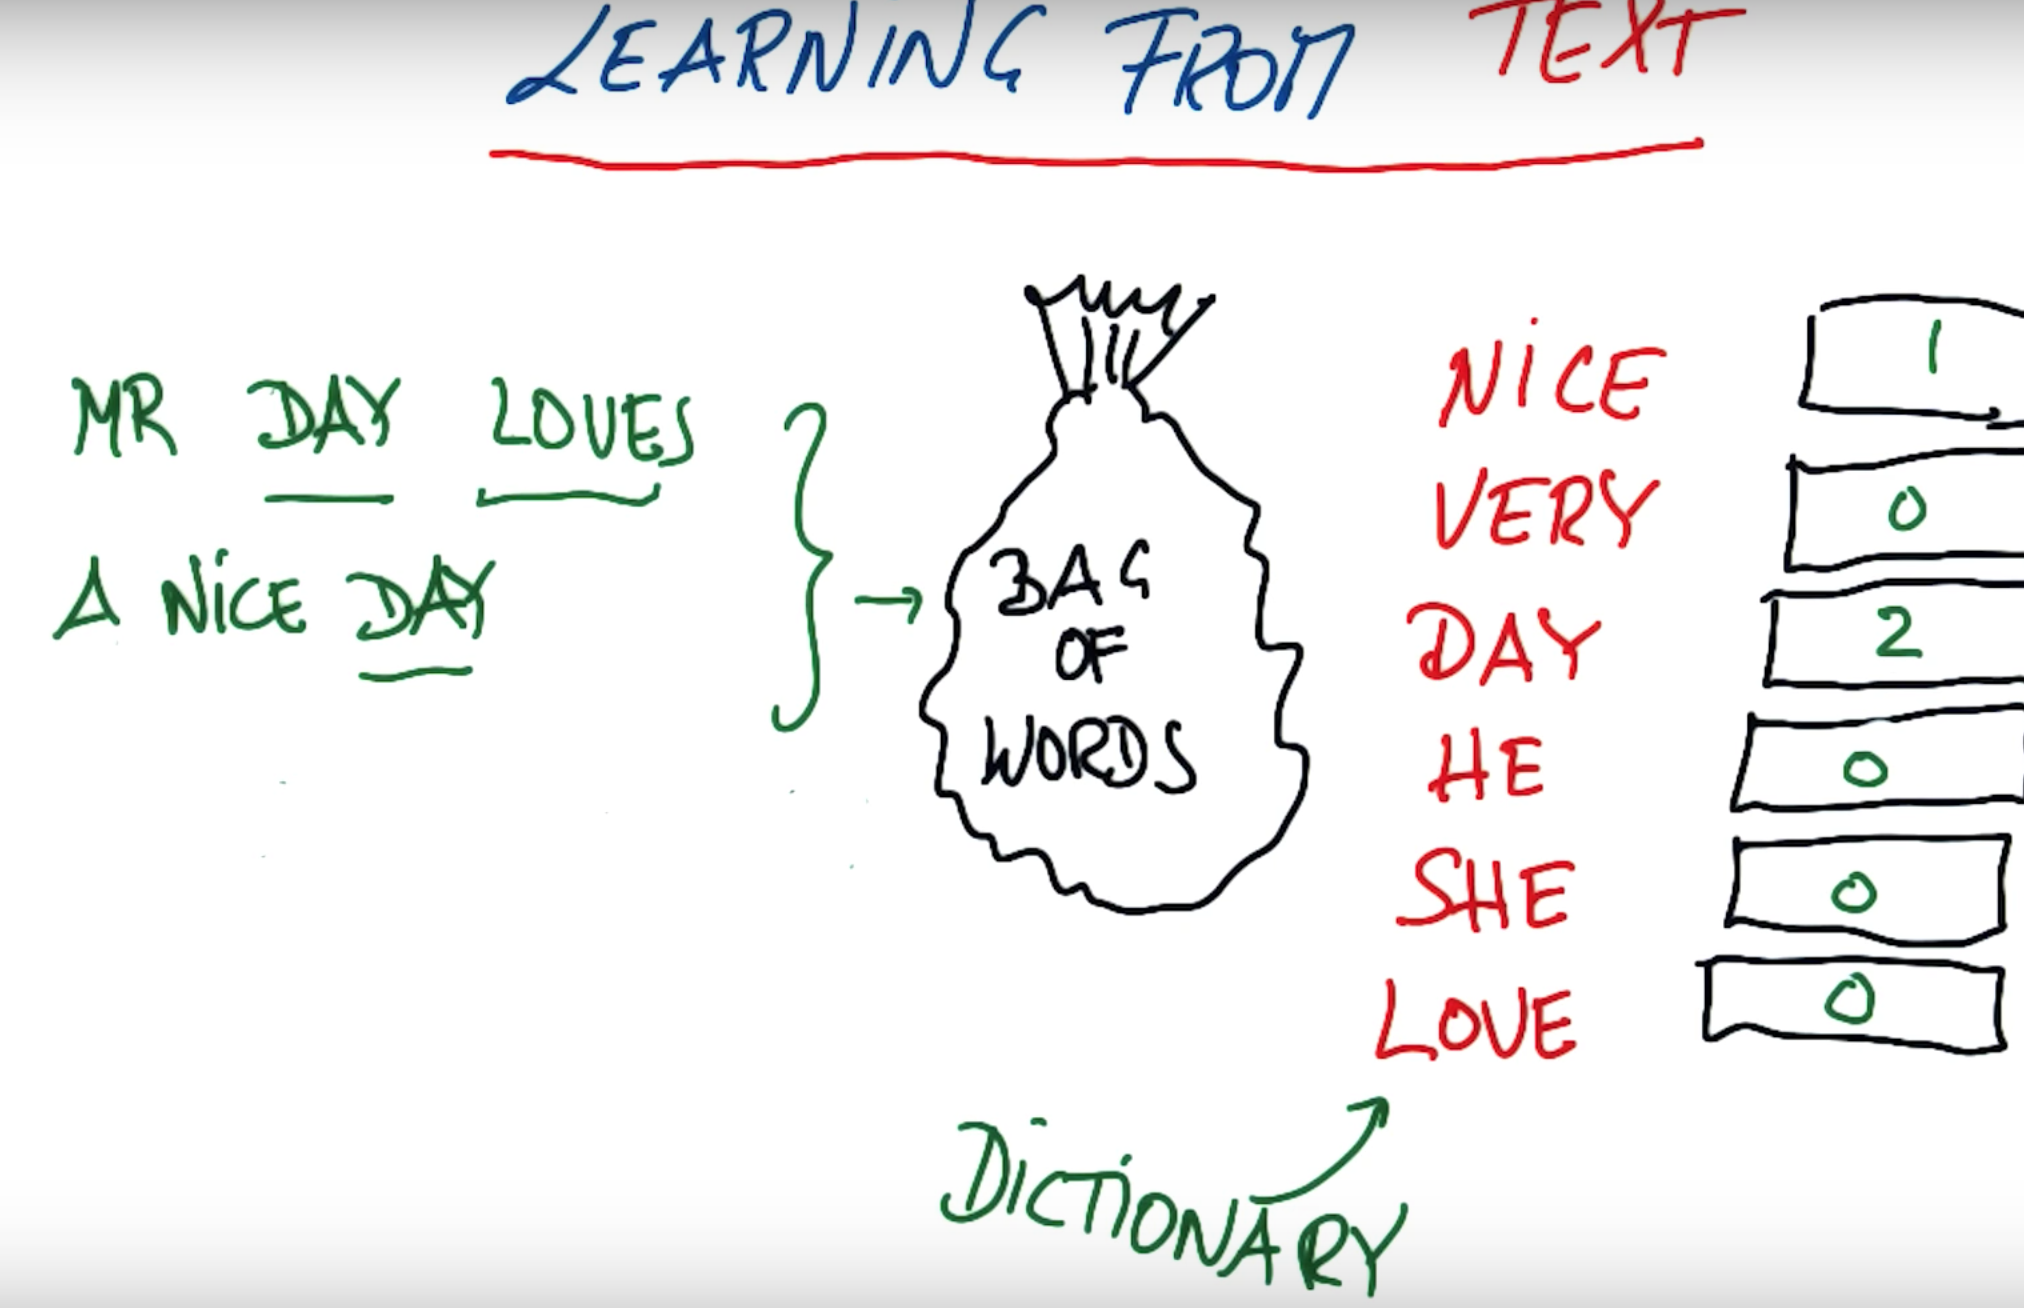 LEARNING FROM TEXT
MR DAY LOVES
A NiCE DAY
BAG
OF
WORDS
NiCE 1
VERY 0
DAY 2
HE 0
SHE 0
LOVE 0
DiCTiONARY